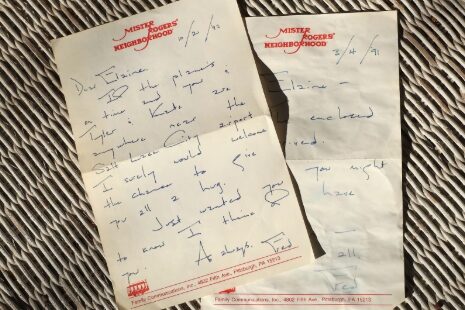 MISTER
ROGERS'
NEIGHBORHOOD
10/21/92
Dear Elaine,
If the plane's
on time and you &
Tyler & Keith are
anywhere near the
Salt Lake City airport
I surely would welcome
the chance to give
you all a hug.
Just wanted you
to know I think of
you. As always, Fred
Family Communications, Inc., 4802 Fifth Ave., Pittsburgh, PA 15213
MISTER
ROGERS'
NEIGHBORHOOD
3/4/91
Elaine -
enclosed
you might
have
-
all,
Fred
Family Communications, Inc., 4802 Fifth Ave., Pittsburgh, PA 15213